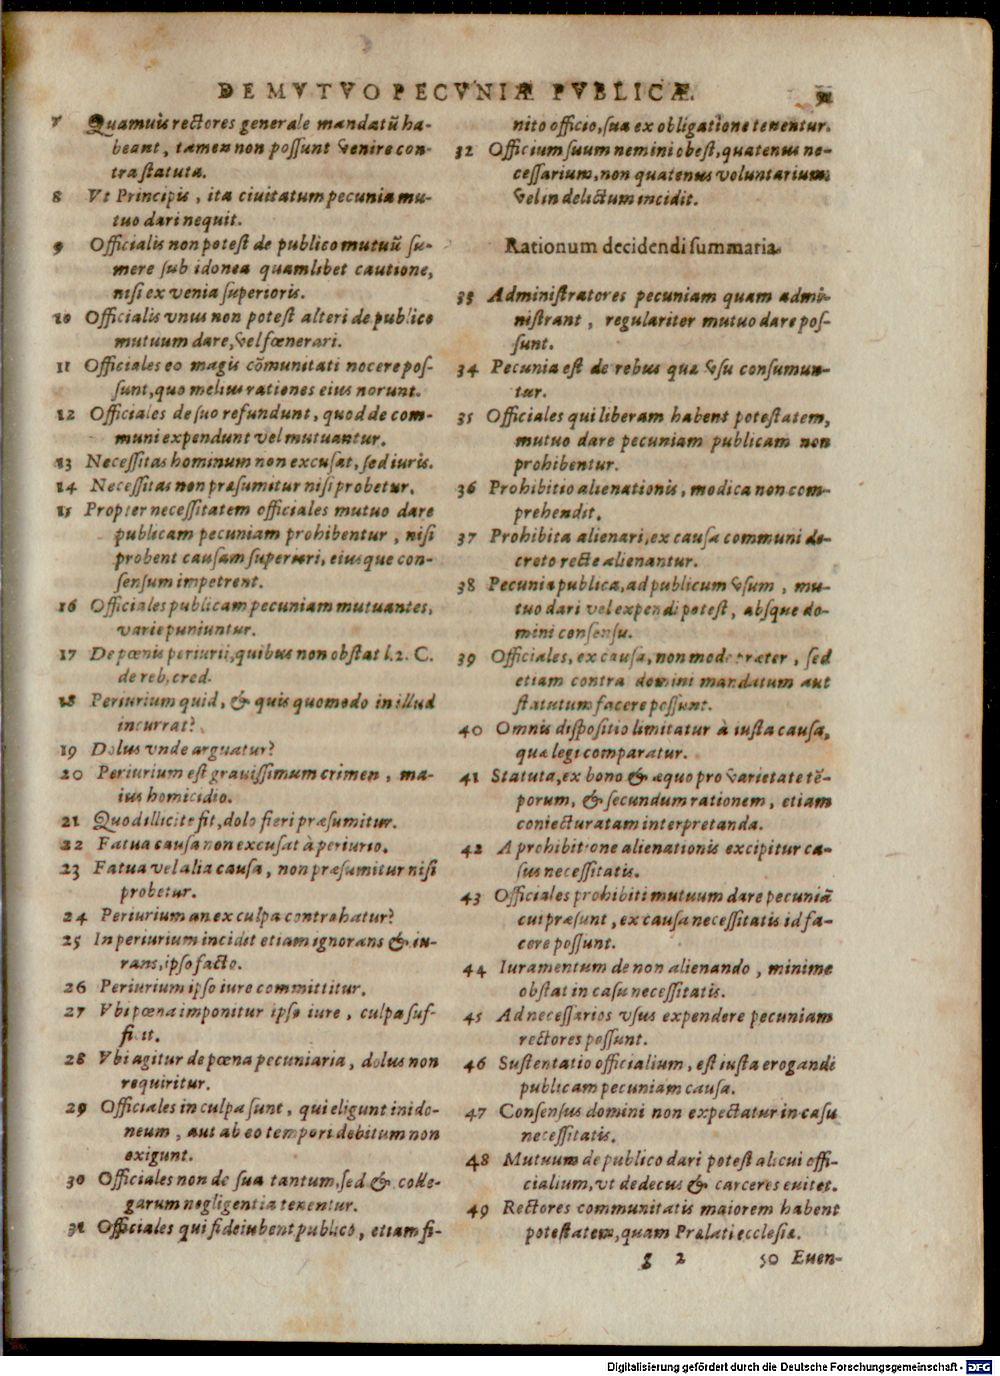 DE MVTVO PECVNIÆ PVBLICÆ.
7 Quamuis rectores generale mandatũ ha-
beant, tamen non possunt venire con-
tra statuta.
8 Vt Principis, ita ciuitatum pecunia mu-
tuo dari nequit.
9 Officialis non potest de publico mutuũ su-
mere sub idonea quamlibet cautione,
nisi ex venia superioris.
10 Officialis vnus non potest alteri de publico
mutuum dare, vel fœnerari.
11 Officiales eo magis cõmunitati nocere pos-
sunt, quo melius rationes eius norunt.
12 Officiales de suo refundunt, quod de com-
muni expendunt vel mutuantur.
13 Necessitas hominum non excusat, sed iuris.
14 Necessitas non præsumitur nisi probetur.
15 Propter necessitatem officiales mutuo dare
publicam pecuniam prohibentur, nisi
probent causam superiori, eiusque con-
sensum impetrent.
16 Officiales publicam pecuniam mutuantes,
varie puniuntur.
17 De pœnis periurii, quibus non obstat l.2. C.
de reb. cred.
18 Periurium quid, & quis quomodo in illud
incurrat?
19 Dolus vnde arguatur?
20 Periurium est grauissimum crimen, ma-
ius homicidio.
21 Quod illicite fit, dolo fieri præsumitur.
22 Fatua causa non excusat à periurio.
23 Fatua vel alia causa, non præsumitur nisi
probetur.
24 Periurium an ex culpa contrahatur?
25 In periurium incidit etiam ignorans & iu-
rans, ipso facto.
26 Periurium ipso iure committitur.
27 Vbi pœna imponitur ipso iure, culpa suf-
ficit.
28 Vbi agitur de pœna pecuniaria, dolus non
requiritur.
29 Officiales in culpa sunt, qui eligunt inido-
neum, aut ab eo tempori debitum non
exigunt.
30 Officiales non de sua tantum, sed & colle-
garum negligentia tenentur.
31 Officiales qui fideiubent publico, etiam fi-
nito officio, sua ex obligatione tenentur.
32 Officium suum nemini obest, quatenus ne-
cessarium, non quatenus voluntarium,
vel in delictum incidit.
Rationum decidendi summaria.
33 Administratores pecuniam quam admi-
nistrant, regulariter mutuo dare pos-
sunt.
34 Pecunia est de rebus quæ vsu consumun-
tur.
35 Officiales qui liberam habent potestatem,
mutuo dare pecuniam publicam non
prohibentur.
36 Prohibitio alienationis, modica non com-
prehendit.
37 Prohibita alienari, ex causa communi de-
creto recte alienantur.
38 Pecunia publica, ad publicum vsum, mu-
tuo dari vel expendi potest, absque do-
mini consensu.
39 Officiales, ex causa, non modo præter, sed
etiam contra domini mandatum aut
statutum facere possunt.
40 Omnis dispositio limitatur à iusta causa,
quæ legi comparatur.
41 Statuta, ex bono & æquo pro varietate tẽ-
porum, & secundum rationem, etiam
coniecturatam interpretanda.
42 A prohibitione alienationis excipitur ca-
sus necessitatis.
43 Officiales prohibiti mutuum dare pecuniã
cui præsunt, ex causa necessitatis id fa-
cere possunt.
44 Iuramentum de non alienando, minime
obstat in casu necessitatis.
45 Ad necessarios vsus expendere pecuniam
rectores possunt.
46 Sustentatio officialium, est iusta erogandi
publicam pecuniam causa.
47 Consensus domini non expectatur in casu
necessitatis.
48 Mutuum de publico dari potest alicui offi-
cialium, vt dedecus & carceres euitet.
49 Rectores communitatis maiorem habent
potestatem, quam Prælati ecclesiæ.
g 2 50 Euen-
Digitalisierung gefördert durch die Deutsche Forschungsgemeinschaft - DFG